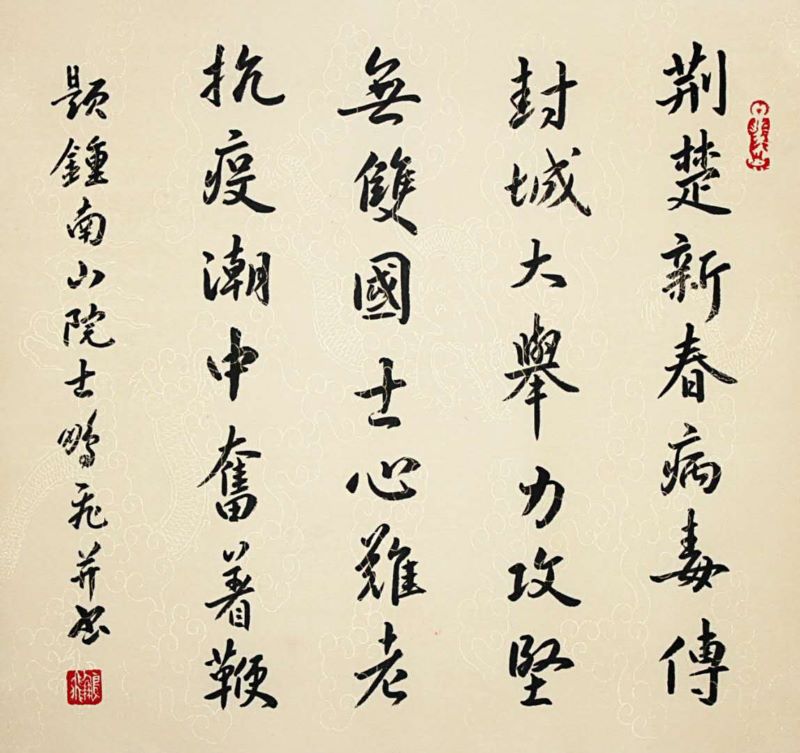 荆楚新春病毒傳
封城大舉力攻堅
無雙國士心難老
抗疫潮中奮著鞭
题鍾南山院士鵬飛并书